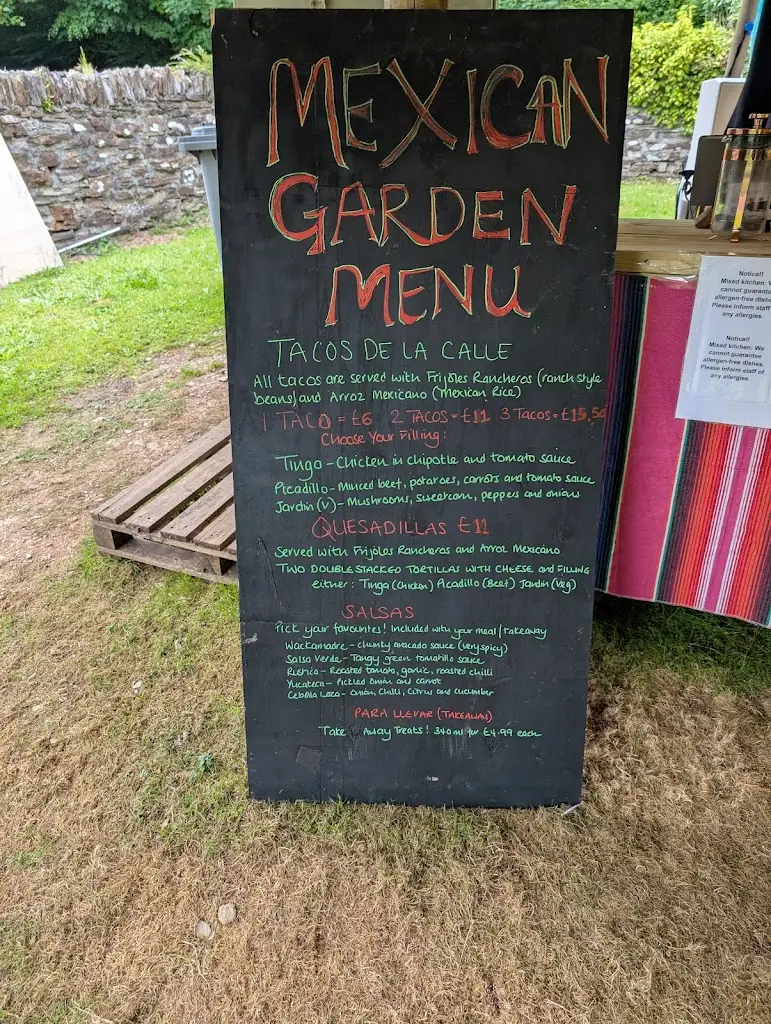 MEXICAN
GARDEN
MENU
TACOS DE LA CALLE
All tacos are served with Frijoles Rancheros (ranch style
beans) and Arroz Mexicano (Mexican Rice)
1 TACO = £6 2 TACOS = £11 3 Tacos = £15,50
Choose Your Filling:
Tinga - Chicken in chipotle and tomato sauce
Picadillo - Minced beef, potatoes, carrots and tomato sauce
Jardin (v) - Mushrooms, sweetcorn, peppers and onions
QUESADILLAS £11
Served with Frijoles Rancheros and Arroz Mexicano
TWO DOUBLE STACKED TORTILLAS WITH CHEESE AND FILLING
either: Tinga (Chicken) Picadillo (Beef) Jardin (Veg)
SALSAS
Pick your favourites! Included with your meal/takeaway
Wackamadre - chunky avocado sauce (very spicy)
Salsa Verde - Tangy green tomatillo sauce
Rustica - Roasted tomato, garlic, roasted chilli
Yucateca - Pickled Onion and carrot
Cebolla Loca - Onion, Chilli, Citrus and cucumber
PARA LLEVAR (TAKEAWAY)
Take Away Treats! 340ml for £4.99 each
Notice!!
Mixed kitchen: W
cannot guarante
allergen-free dishe
Please inform staff o
any allergies.
Notice!!
Mixed kitchen: We
cannot guarantee
allergen-free dishes.
Please inform staff of
any allergies.